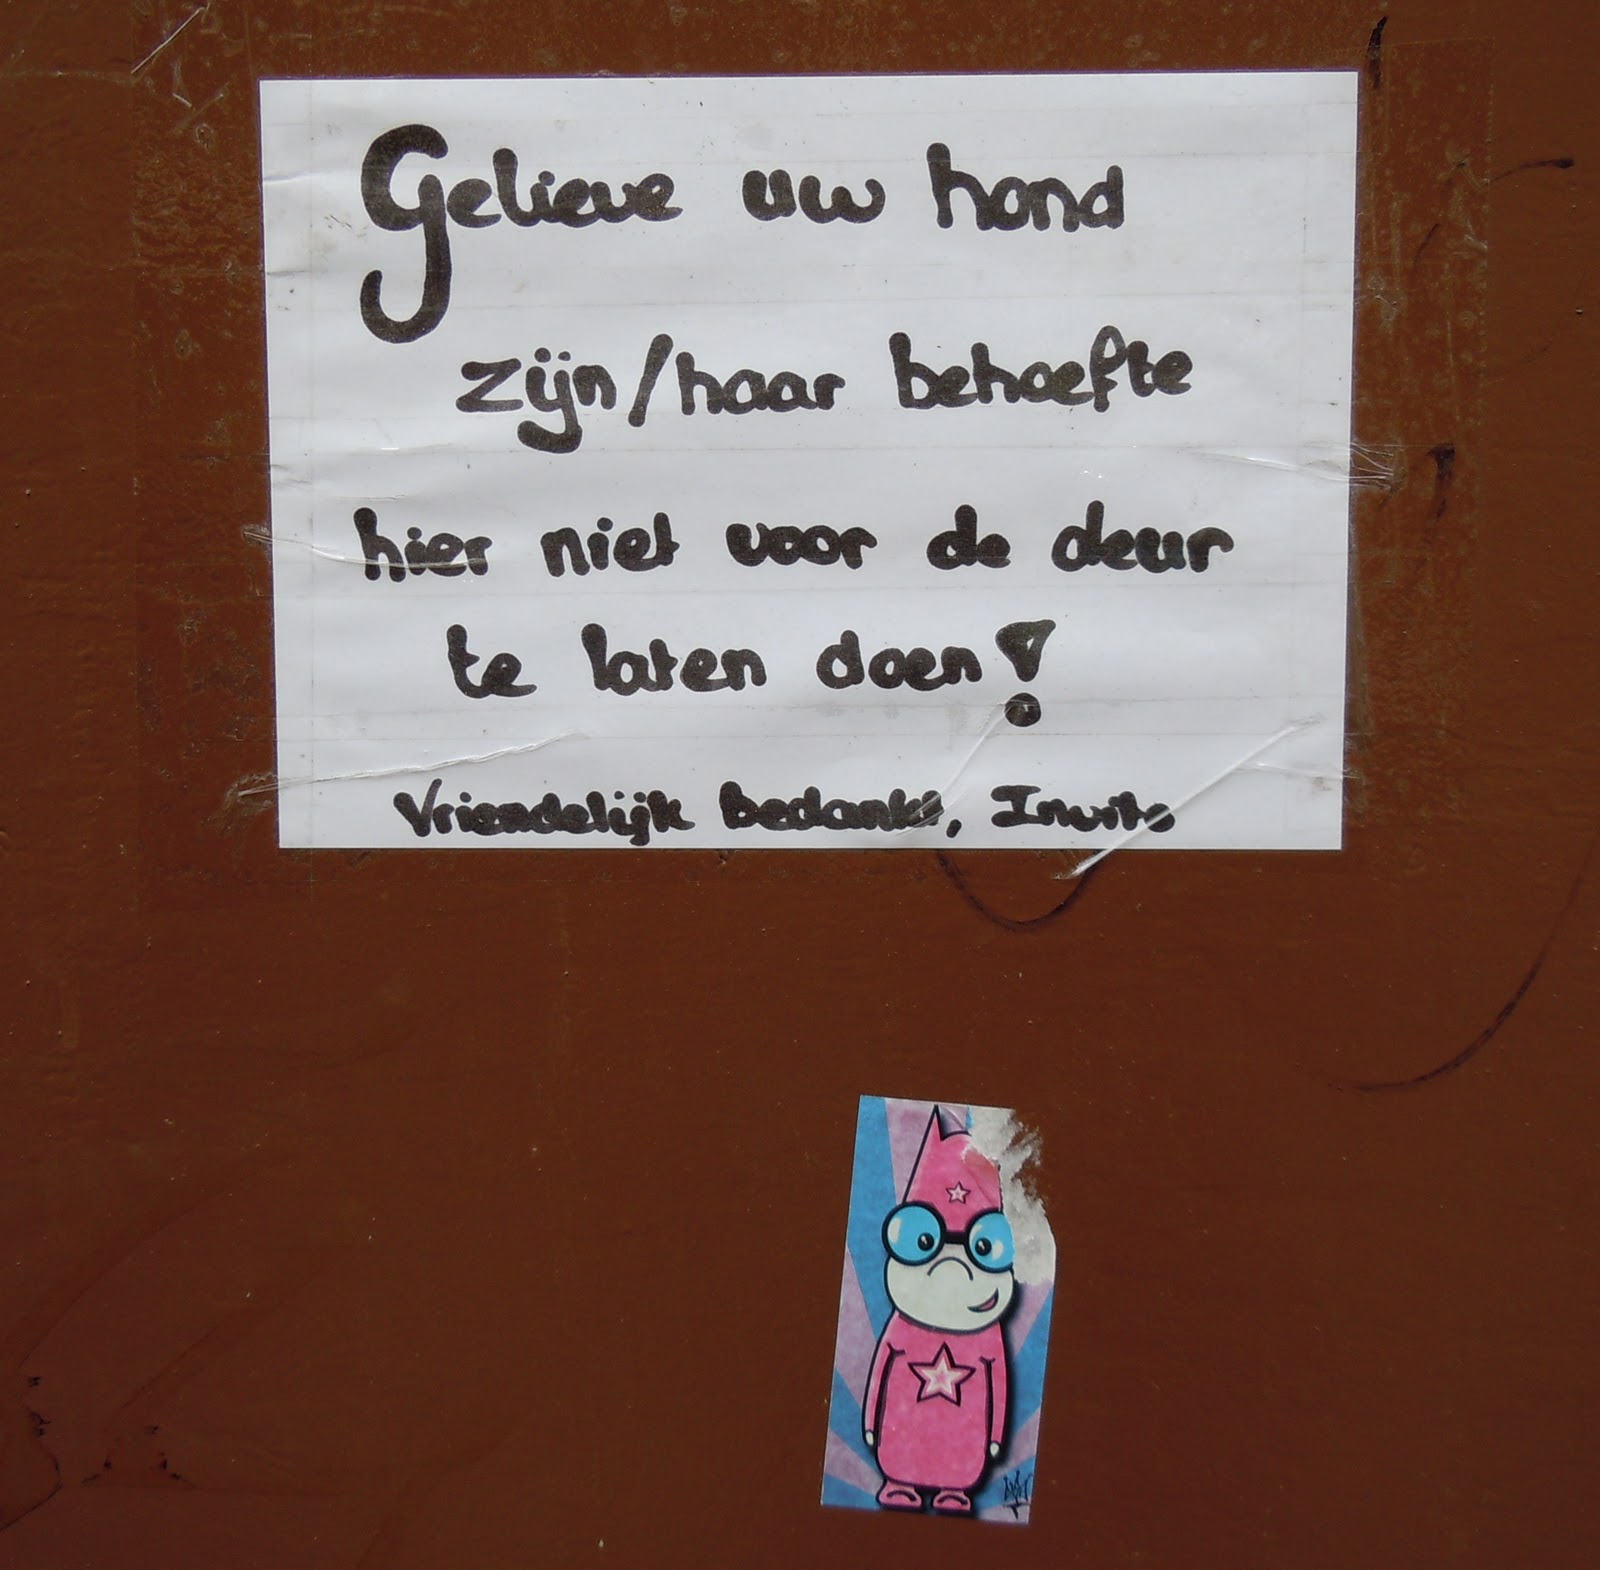 Gelieve uw hond
zijn/haar behoefte
hier niet voor de deur
te laten doen!
Vriendelijk bedankt, Invito